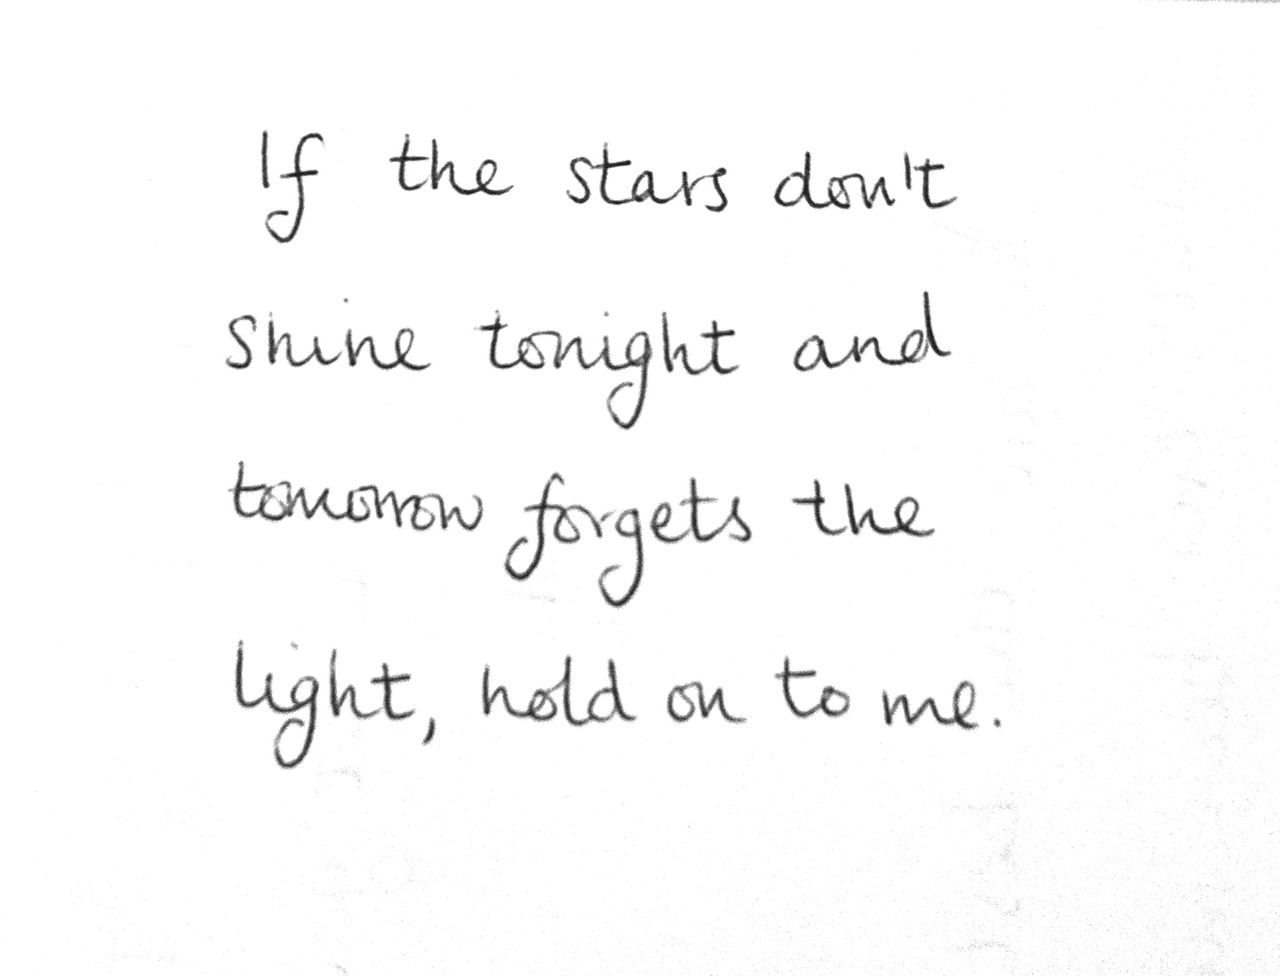 If the stars don't
shine tonight and
tomorrow forgets the
light, hold on to me.